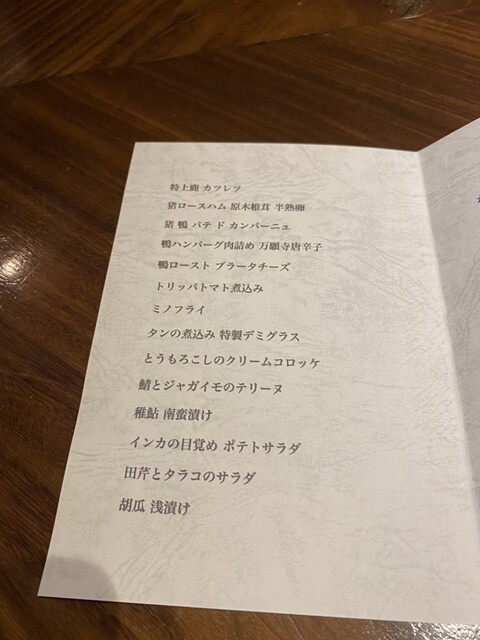 特上鹿 カツレツ
猪ロースハム 原木椎茸 半熟卵
猪 鴨 パテ ド カンパーニュ
鴨ハンバーグ肉詰め 万願寺唐辛子
鴨ロースト ブラータチーズ
トリッパトマト煮込み
ミノフライ
タンの煮込み 特製デミグラス
とうもろこしのクリームコロッケ
鯖とジャガイモのテリーヌ
稚鮎 南蛮漬け
インカの目覚め ポテトサラダ
田芹とタラコのサラダ
胡瓜 浅漬け